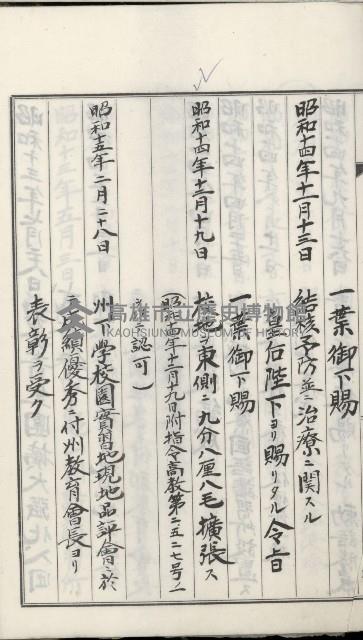 一葉御下賜
昭和十四年十二月十三日 結核予防並ニ治療ニ関スル
皇后陛下ヨリ賜リタル令旨
一葉御下賜
昭和十四年十二月十九日 校地東側ニ九分八厘八毛擴張ス
(昭和十四年十二月十九日附指令高教第二五二七号ノ
認可)
昭和十五年二月二十八日 州下學校園實習地現地品評會ニ於
テ成績優秀ニ付州教育會長ヨリ
表彰ヲ受ク
高雄市立歷史博物館
KAOHSIUNG MUSEUM OF HISTORY